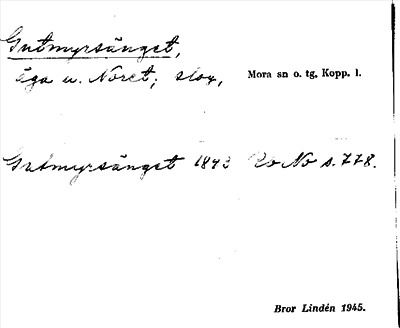 Gutmyrsänget,
äga u. Noret; slog, Mora sn o. tg, Kopp. l.
Gutmyrsänget 1843 Ro No s. 778.
Bror Lindén 1945.